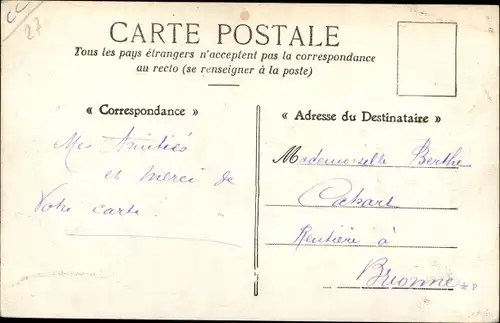 CC
27
CARTE POSTALE
Tous les pays étrangers n'acceptent pas la correspondance
au recto (se renseigner à la poste)
« Correspondance »
Mes Amitiés
et merci de
Votre carte.
« Adresse du Destinataire »
Mademoiselle Berthe
Rentière à
Brionne